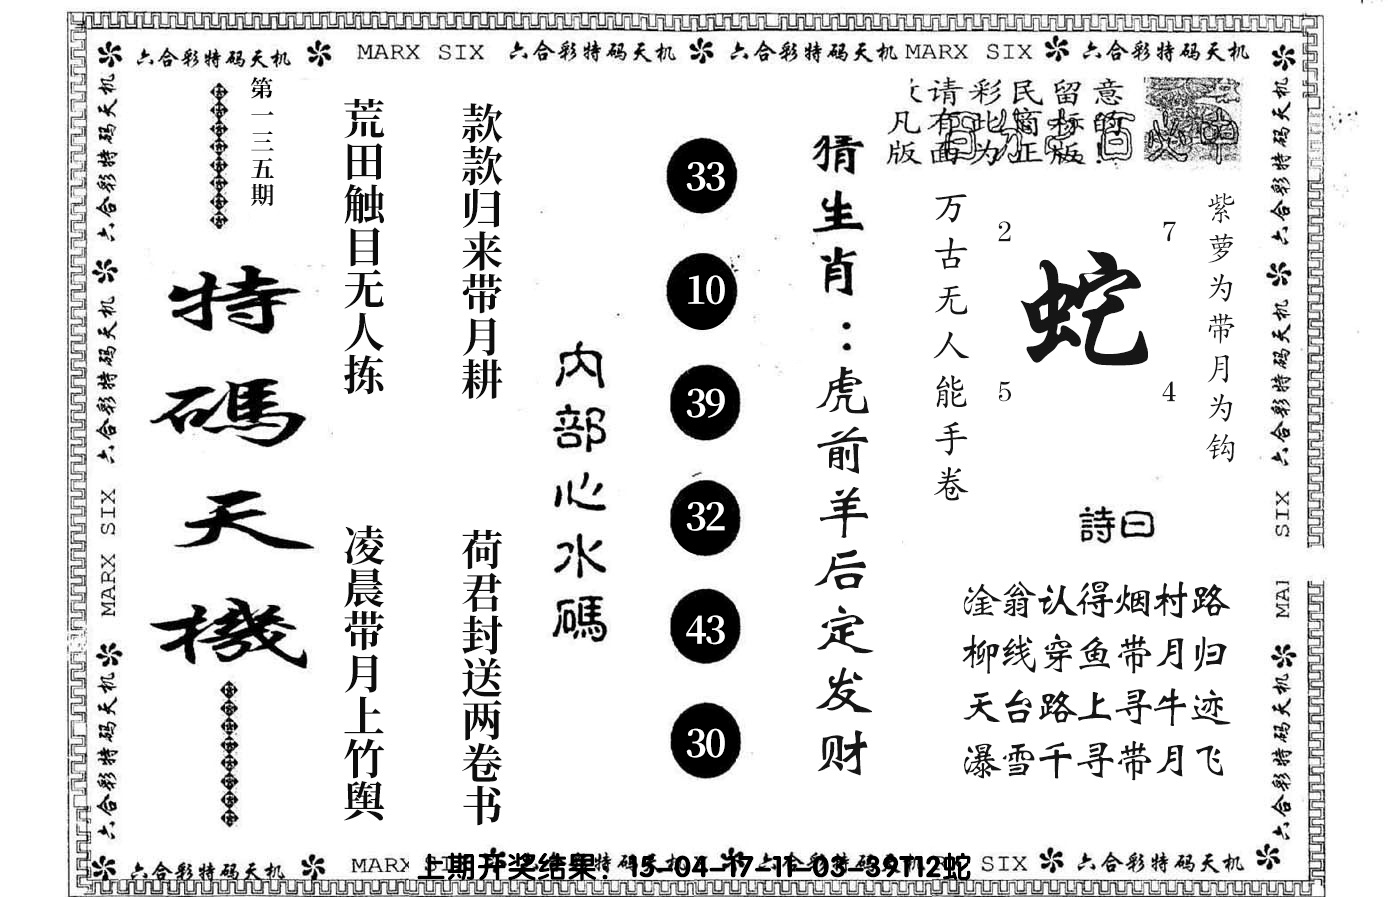 六合彩特码天机 MARX SIX 六合彩特码天机 六合彩特码天机 MARX SIX 六合彩特码天机
六合彩特码天机 六合彩特码天机 MARX SIX 六合彩特码天机
第一三五期
特碼天機
荒田触目无人拣
凌晨带月上竹舆
款款归来带月耕
荷君封送两卷书
内部心水碼
33
10
39
32
43
30
猜生肖：虎前羊后定发财
请彩民留意
凡有此窗标的
版面为正版!
万古无人能手卷
2
7
蛇
5
4
紫萝为带月为钩
詩曰
淦翁认得烟村路
柳线穿鱼带月归
天台路上寻牛迹
瀑雪千寻带月飞
六合彩特码天机 六合彩特码天机 SIX MAI 六合彩特码天机
六合彩特码天机 MARX SIX 六合彩特码天机
上期开奖结果：15-04-17-11-03-39T12蛇